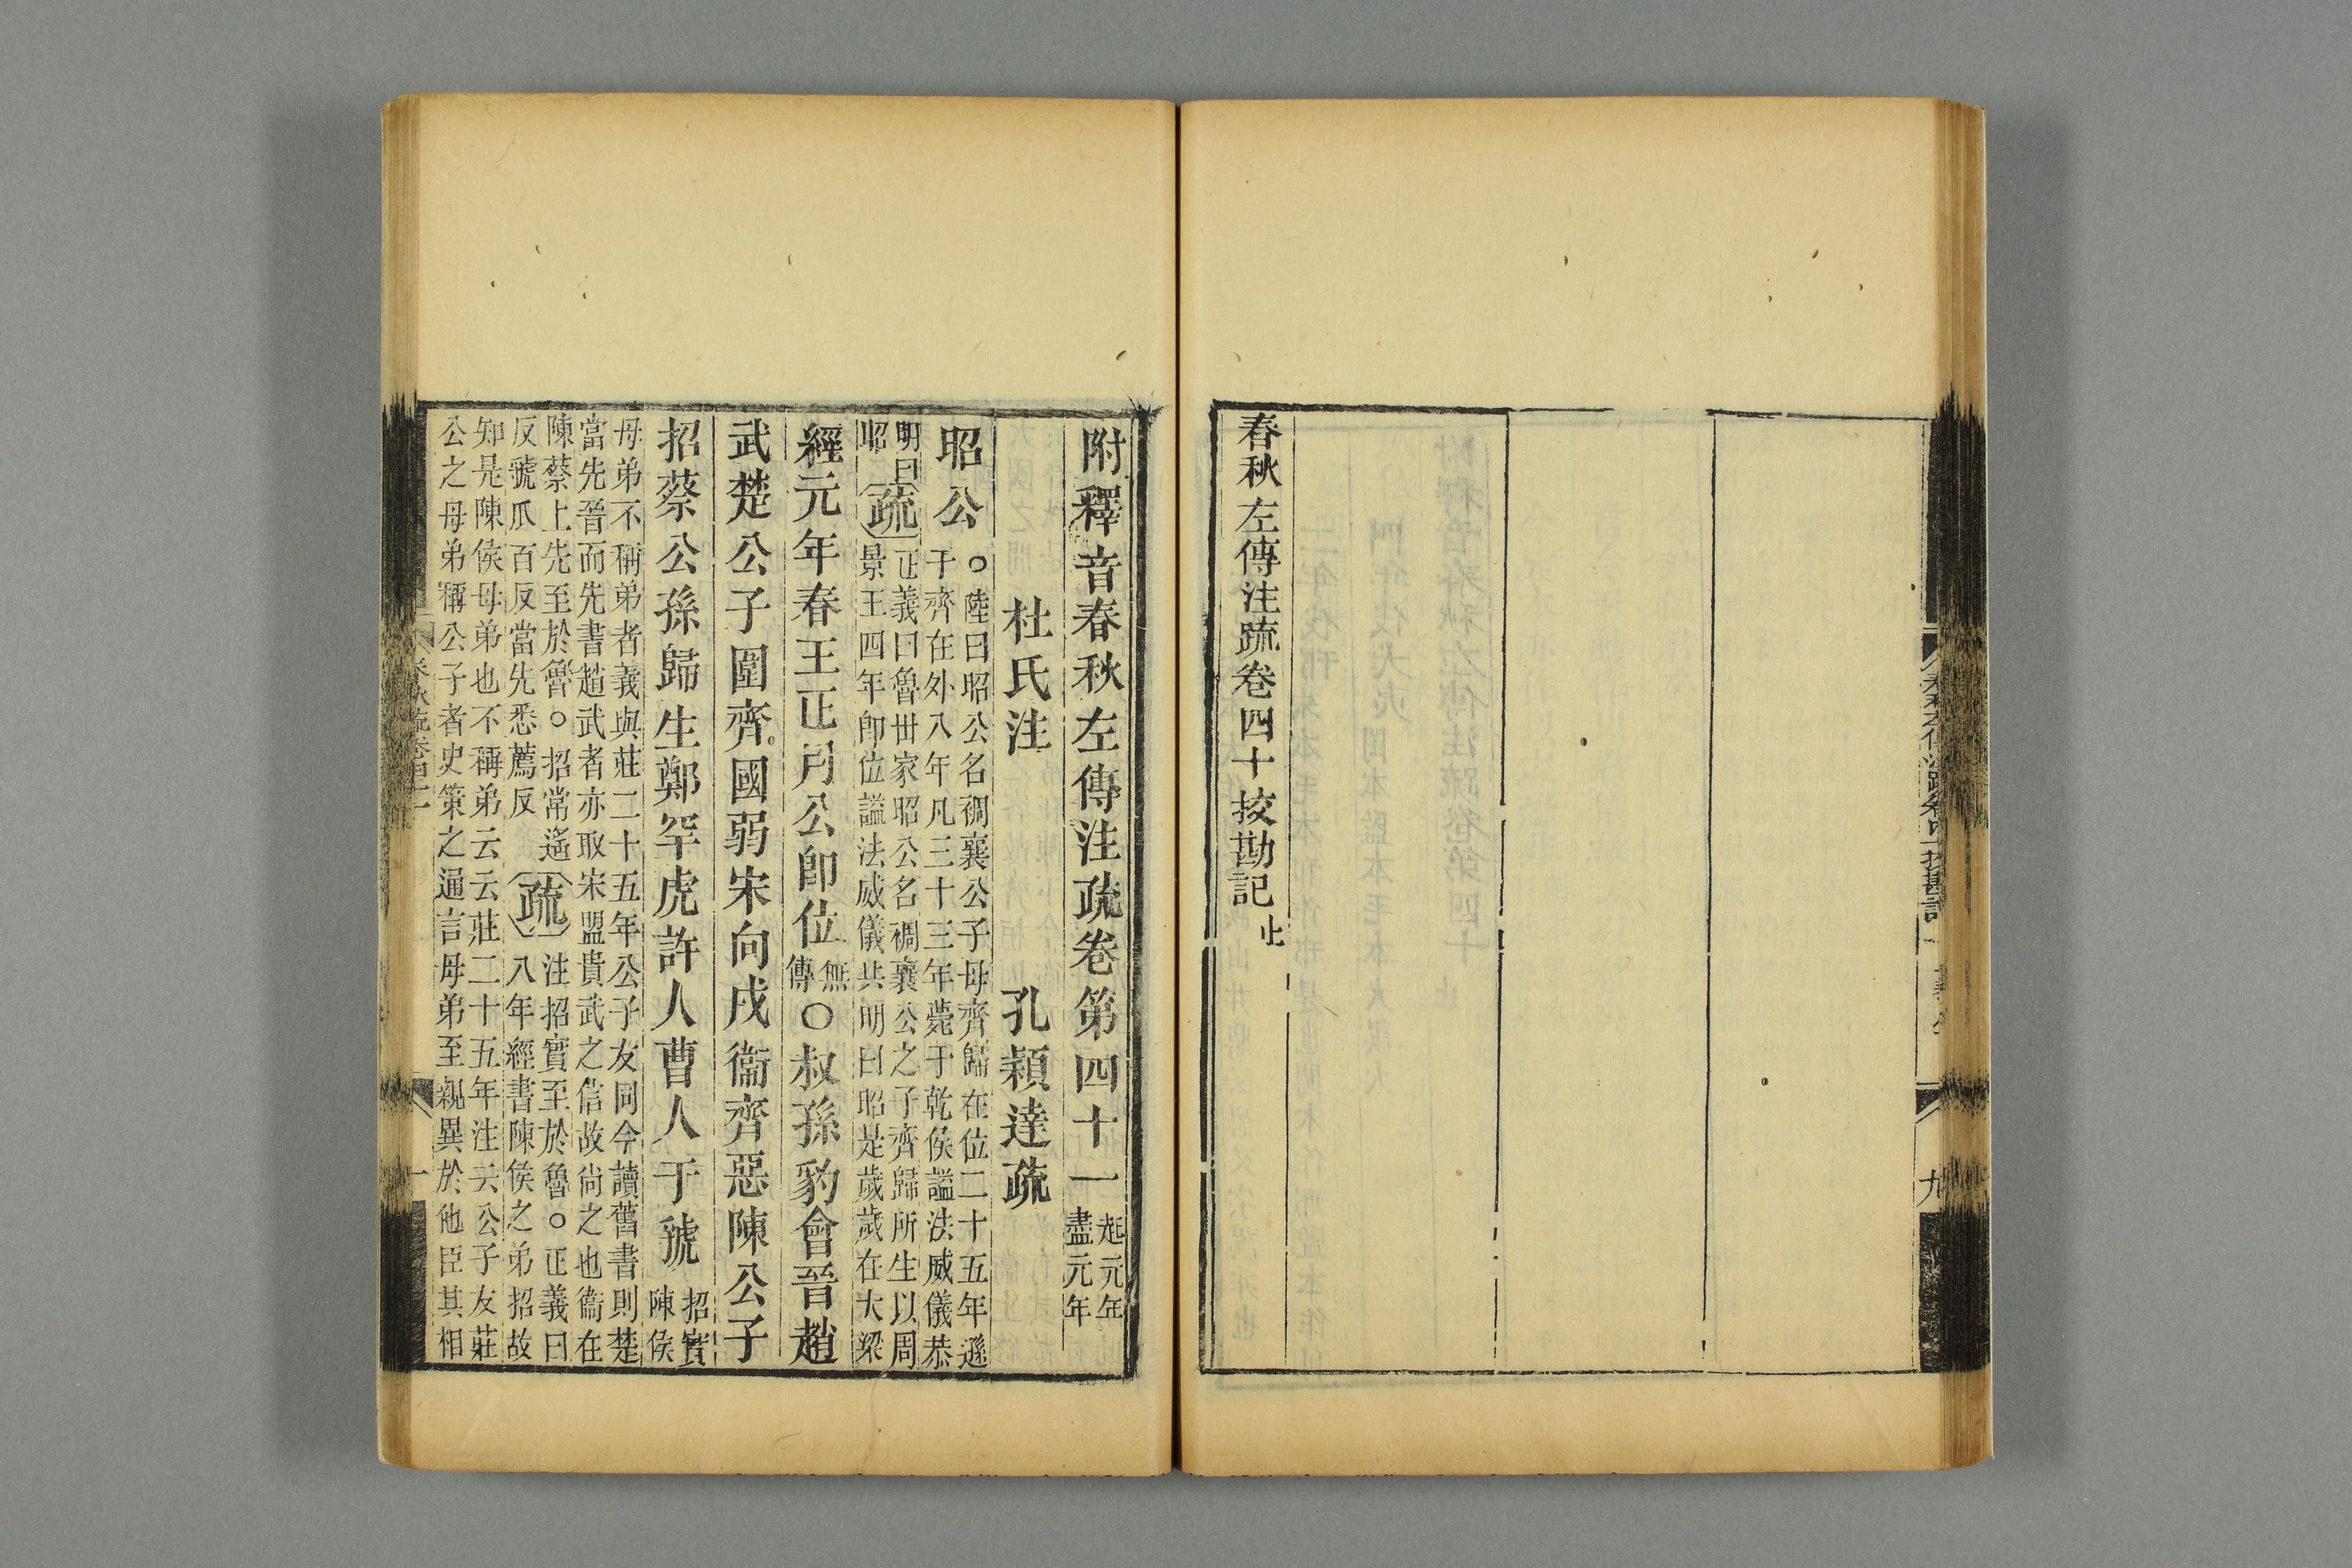 春秋左傳注疏卷四十挍勘記止
附釋音春秋左傳注疏卷第四十一
起元年
盡元年
杜氏注 孔穎達疏
昭公
○陸曰昭公名裯襄公子母齊歸在位二十五年遜
于齊在外八年凡三十三年薨于乾侯謚法威儀恭
明曰
昭
疏
正義曰魯丗家昭公名裯襄公之子齊歸所生以周
景王四年卽位謚法威儀共明曰昭是歲歲在大梁
經元年春王正月公卽位
無
傳
○叔孫豹會晉趙
武楚公子圍齊國弱宋向戌衞齊惡陳公子
招蔡公孫歸生鄭罕虎許人曹人于虢
招實
陳侯
母弟不稱弟者義與莊二十五年公子友同今讀舊書則楚
當先晉而先書趙武者亦取宋盟貴武之信故尙之也衞在
陳蔡上先至於魯○招常遙
反虢爪百反當先悉薦反
疏
注招實至於魯○正義曰
八年經書陳侯之弟招故
知是陳侯母弟也不稱弟云云莊二十五年注云公子友莊
公之母弟稱公子者史策之通言母弟至親異於他臣其相